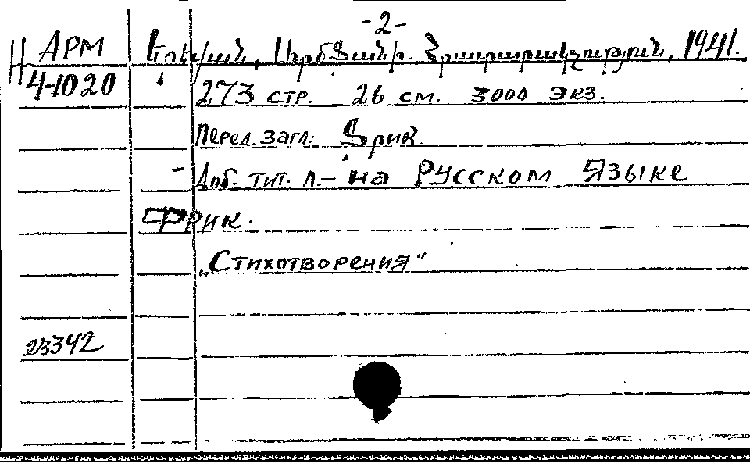 -2-
Н АРМ
4-1020
Երևան, Արմֆանի. Հրատարակչություն, 1941.
273 стр. 26 см. 3000 экз.
Перед загл: Ֆրիկ.
Доб. тит. л.- на русском языке
Фрик.
„Стихотворения"
23342